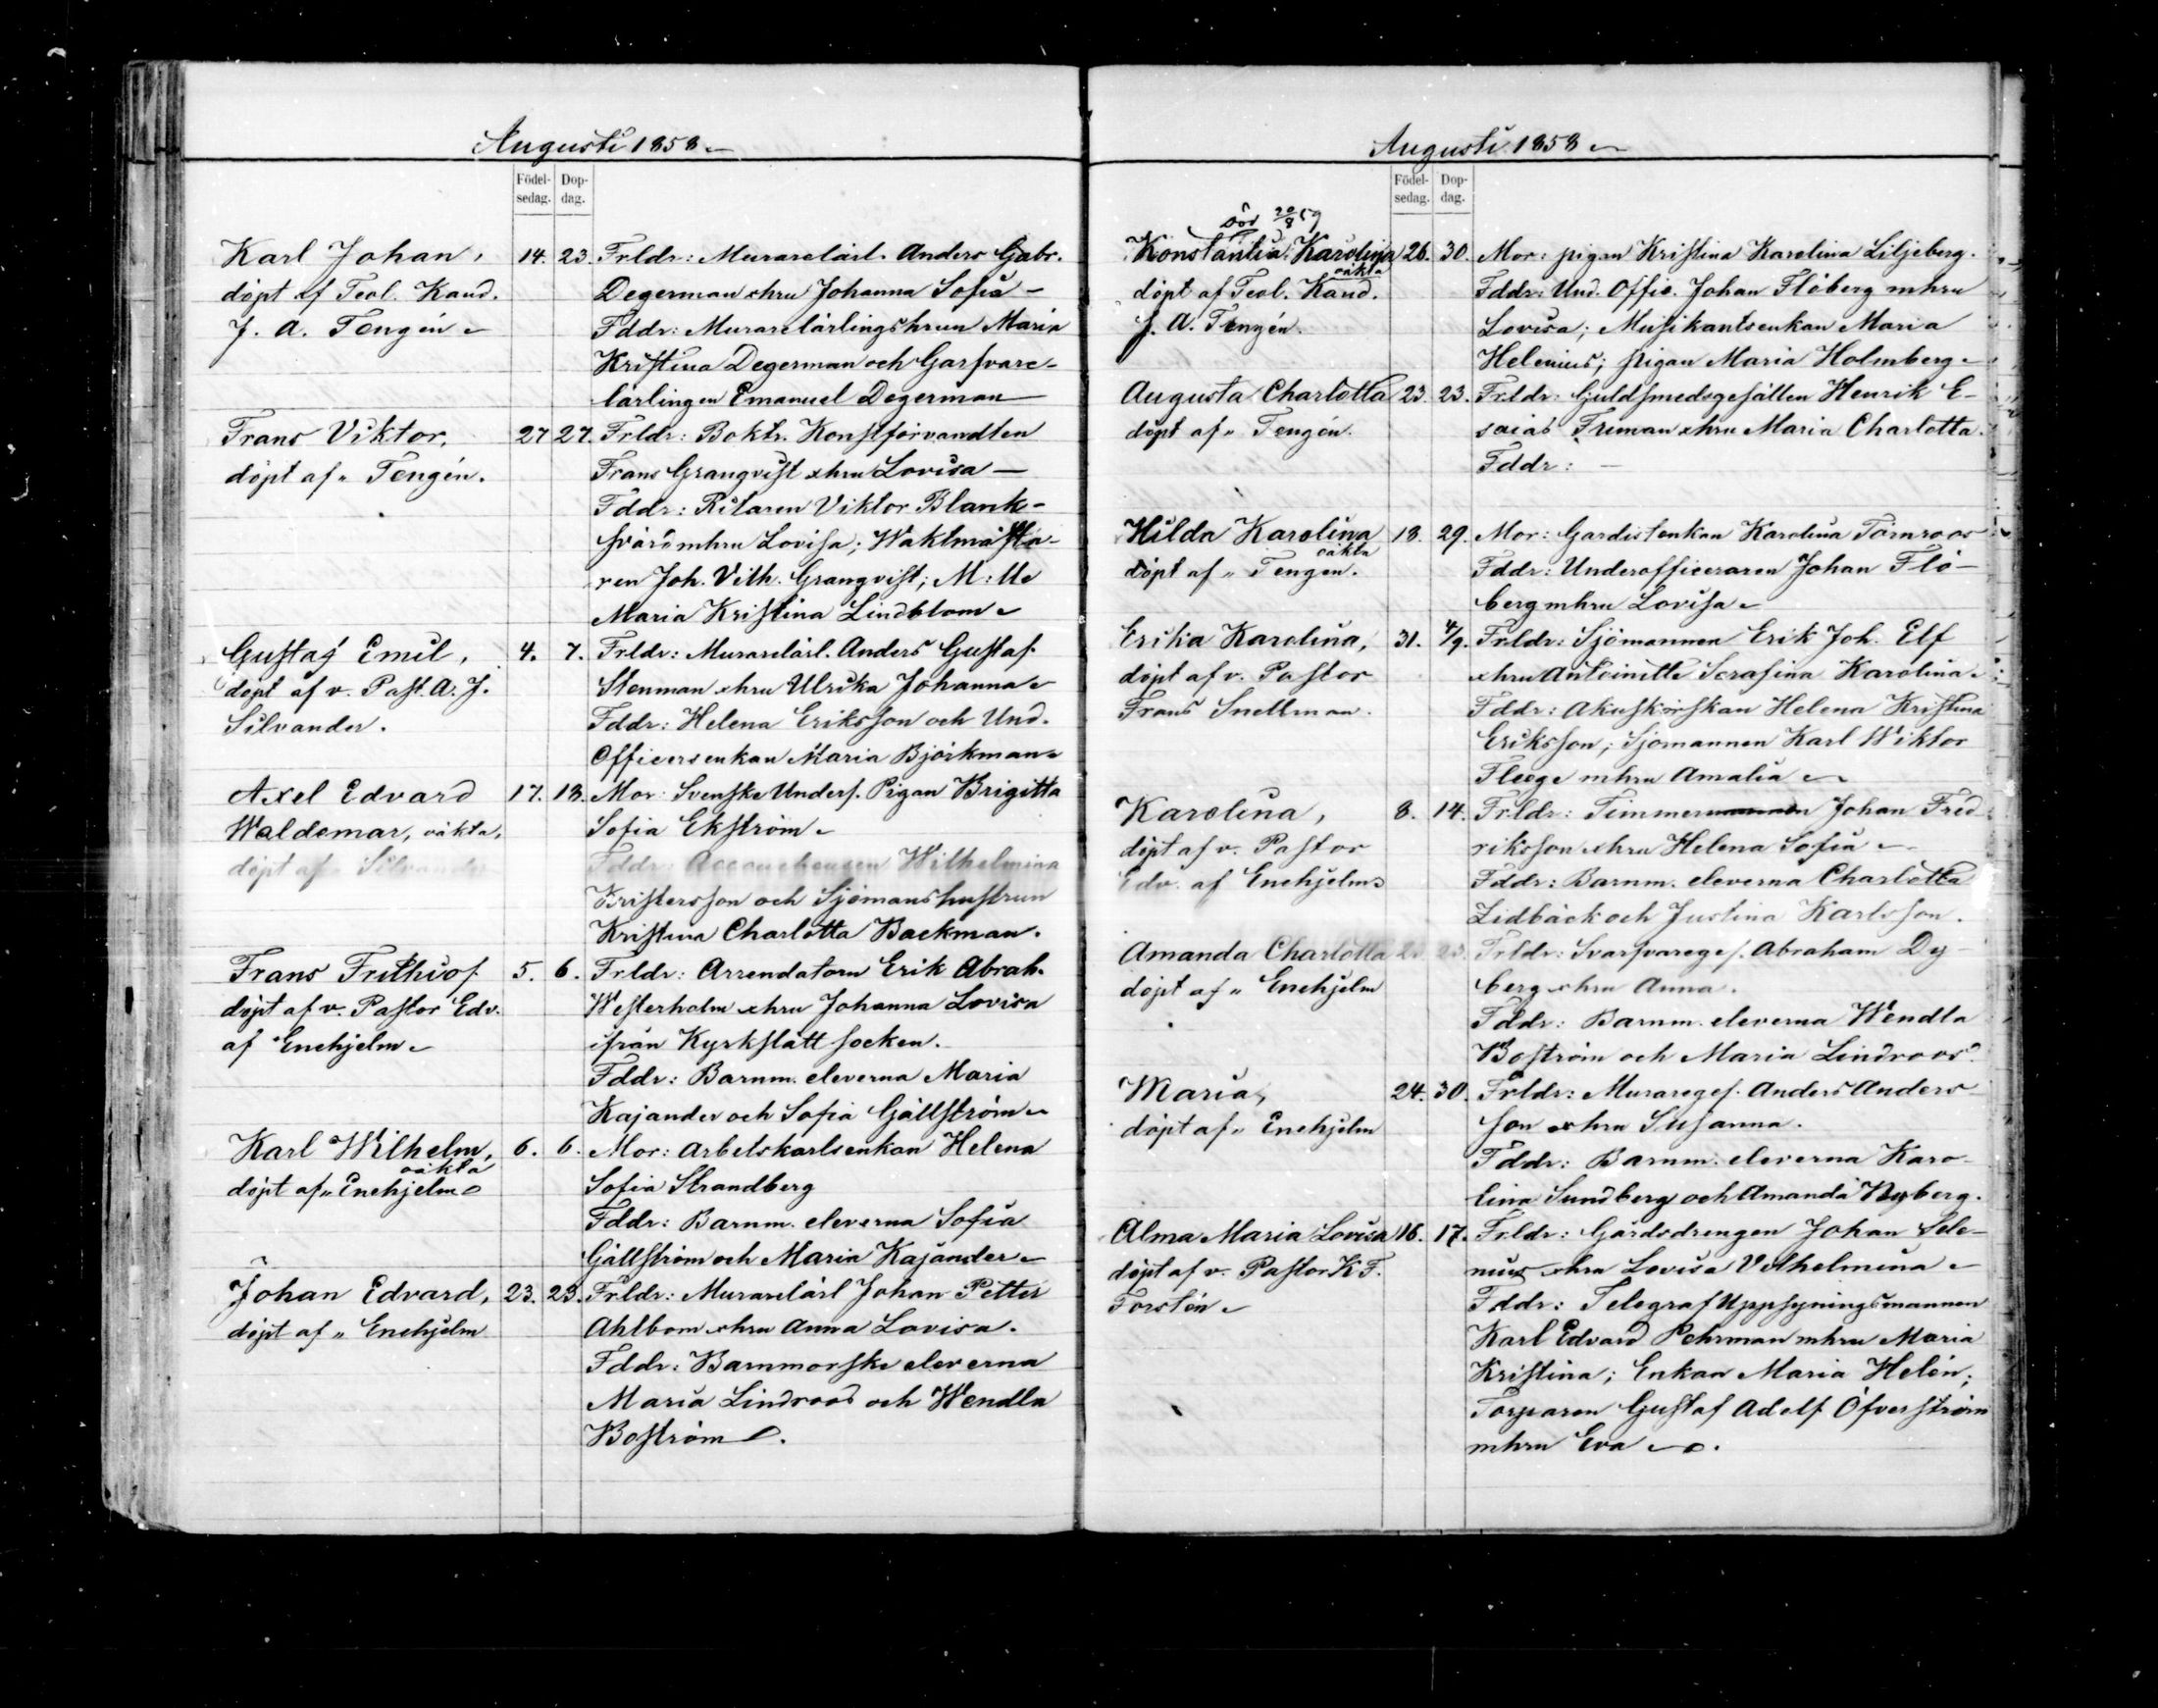 Augusti 1858
Födel-
sedag.
Dop-
dag.
Karl Johan, 14. 23. Frldr: Murarelärl. Anders Gabr.
döpt af Teol. Kand. Degerman o hru Johanna Sofia –
J. A. Tengén Fddr: Murarelärlingshrun Maria
Kristina Degerman och Garfvare-
lärlingen Emanuel Degerman
Frans Viktor, 27 27. Frldr: Boktr. Konstförvandten
döpt af „ Tengén. Frans Granqvist o hru Lovisa –
Fddr: Ritaren Viktor Blank-
svärd m hru Lovisa; Waktmästa-
ren Joh. Vilh. Granqvist; M:lle
Maria Kristina Lindblom
Gustaf Emil, 4. 7. Frldr: Murarelärl. Anders Gustaf
döpt af v. Past. A. J. Stenman o hru Ulrika Johanna
Silvander. Fddr: Helena Eriksson och Und.
Officersenkan Maria Björkman
Axel Edvard 17. 18. Mor: Svenske Unders. Pigan Brigitta
Waldemar, oäkta, Sofia Ekström
döpt af „ Silvander Fddr: Accoucheusen Wilhelmina
Kristersson och Sjömanshustrun
Kristina Charlotta Backman.
Frans Frithiof 5. 6. Frldr: Arrendatorn Erik Abrah.
döpt af v. Pastor Edv. Westerholm o hru Johanna Lovisa
af Enehjelm ifrån Kyrkslätt socken.
Fddr: Barnm. eleverna Maria
Kajander och Sofia Gällström
Karl Wilhelm, 6. 6. Mor: Arbetskarlsenkan Helena
oäkta
döpt af „ Enehjelm Sofia Strandberg
Fddr: Barnm. eleverna Sofia
Gällström och Maria Kajander
Johan Edvard, 23. 23. Frldr: Murarelärl Johan Petter
döpt af „ Enehjelm Ahlbom o hru Anna Lovisa.
Fddr: Barnmorske eleverna
Maria Lindroos och Wendla
Boström.
Augusti 1858
Födel-
sedag.
Dop-
dag.
död 20/8 59
Konstantia Karolina 26. 30. Mor: pigan Kristina Karolina Liljeberg.
oäkta
döpt af Teol. Kand. Fddr: Und. Offic. Johan Flöberg m hru
J. A. Tengén. Lovisa; Musikantsenkan Maria
Helenius; pigan Maria Holmberg
Augusta Charlotta 23. 23. Frldr: Guldsmedsgesällen Henrik E-
döpt af „ Tengén. saias Friman o hru Maria Charlotta.
Fddr: –
Hilda Karolina 18. 29. Mor: Gardistenkan Karolina Törnroos
oäkta
döpt af „ Tengen. Fddr: Underofficeraren Johan Flö-
berg m hru Lovisa
Erika Karolina, 31. 4/9. Frldr: Sjömannen Erik Joh. Elf
döpt af v. Pastor o hru Antoinette Serafina Karolina
Frans Snellman. Fddr: Akuskörskan Helena Kristina
Eriksson; Sjömannen Karl Wiktor
Fleege m hru Amalia
Karolina, 8. 14. Frldr: Timmermannen Johan Fred-
döpt af v. Pastor riksson o hru Helena Sofia
Edv. af Enehjelm Fddr: Barnm. eleverna Charlotta
Lidbäck och Justina Karlsson.
Amanda Charlotta 23 23. Frldr: Svarfvareges. Abraham Dy-
döpt af „ Enehjelm berg o hru Anna.
Fddr: Barnm. eleverna Wendla
Boström och Maria Lindroos.
Maria, 24. 30. Frldr: Murareges. Anders Anders-
döpt af „ Enehjelm son o hru Susanna.
Fddr: Barnm. eleverna Karo-
lina Sundberg och Amanda Nyberg.
Alma Maria Lovisa 16. 17. Frldr: Gårdsdrengen Johan Sele-
döpt af v. Pastor K. F. nius o hru Lovisa Vilhelmina
Forstén Fddr: Telegraf Uppsyningsmannen
Karl Edvard Pehrman m hru Maria
Kristina; Enkan Maria Helén;
Torparen Gustaf Adolf Öfverström
m hru Eva